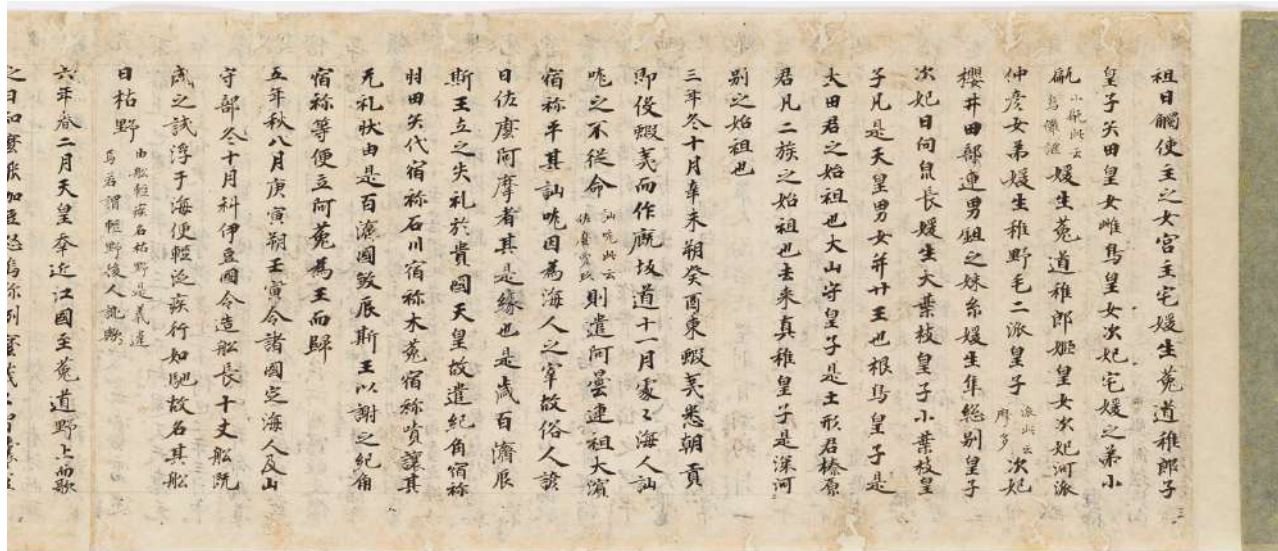 祖日觸使主之女宮主宅媛生菟道稚郎子
皇子矢田皇女雌鳥皇女次妃宅媛之弟小
甂小甂此云烏儺謎媛生菟道稚郎姬皇女次妃河派
仲彥女弟媛生稚野毛二派皇子派此云麻多次妃
櫻井田部連男鉏之妹糸媛生隼総別皇子
次妃日向泉長媛生大葉枝皇子小葉枝皇
子凡是天皇男女并廿王也根鳥皇子是
大田君之始祖也大山守皇子是土形君榛原
君凡二族之始祖也去来真稚皇子是深河
別之始祖也
三年冬十月辛未朔癸酉東蝦夷悉朝貢
即伇蝦夷而作厩坂道十一月處〻海人訕
哤之不從命訕哤此云佐麼賣玖則遣阿曇連祖大濱
宿祢平其訕哤因為海人之宰故俗人諺
曰佐麼阿摩者其是緣也是歲百濟辰
斯王立之失礼於貴國天皇故遣紀角宿祢
羽田矢代宿祢石川宿祢木菟宿祢嘖讓其
无礼狀由是百濟國敦辰斯王以謝之紀角
宿祢等便立阿菟為王而歸
五年秋八月庚寅朔壬寅令諸國定海人及山
守部冬十月科伊豆國令造舩長十丈舩既
成之試浮于海便輕泛疾行如馳故名其舩
曰枯野由舩輕疾名枯野是義違焉若謂輕野後人訛歟
六年春二月天皇幸近江國至菟道野上而歌